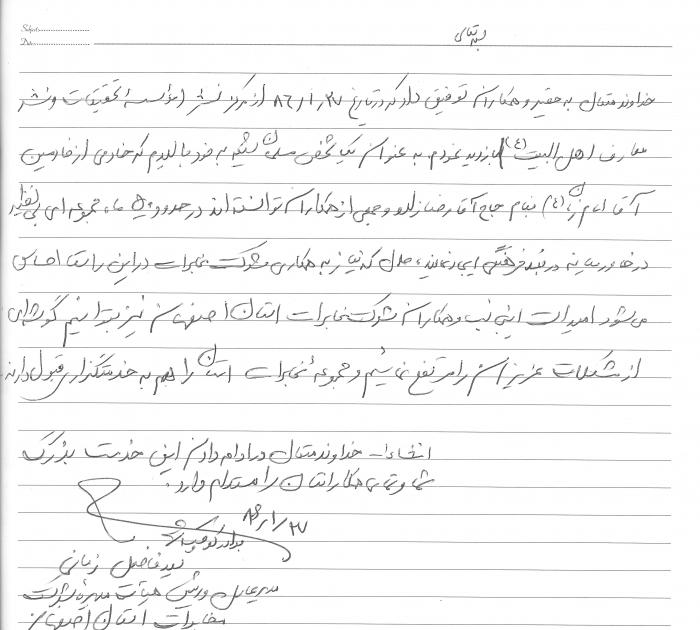 Subject:
Date:
بسمه تعالی
خداوند متعال به حقیر و همکاران توفیق داد که در تاریخ ۸۶/۱/۲۷ از مرکز نشر (مؤسسهٔ تحقیقات و نشر
معارف اهل البیت (ع)) بازدید نمودم به عنوان یک شخص مسلمان شیعه به خود بالیدم که خادمی از خادمین
آقا امام زمان (ع) بنام حاج آقا رضا و جمعی از همکاران توانسته اند در حدود ماه مجموعه ای بی نظیر
در خاورمیانه در بعد فرهنگی ایجاد نمایند، حال که نیاز به همکاری شرکت مخابرات در این راستا احساس
می‌شود امید است اینجانب و همکاران شرکت مخابرات استان اصفهان نیز بتوانیم گوشه‌ای
از مشکلات عزیزان را مرتفع نمائیم و مجموعه مخابرات استان را هم به خدمتگذاری قبول دارند
انشاءا... خداوند متعال در ادامه دادن این خدمت بزرگ
شما و تمامی همکارانتان را مستدام دارد.
۸۶/۱/۲۷
برادر کوچک
سید فاضل زمانی
مدیرعامل و رئیس هیأت مدیره شرکت
مخابرات استان اصفهان